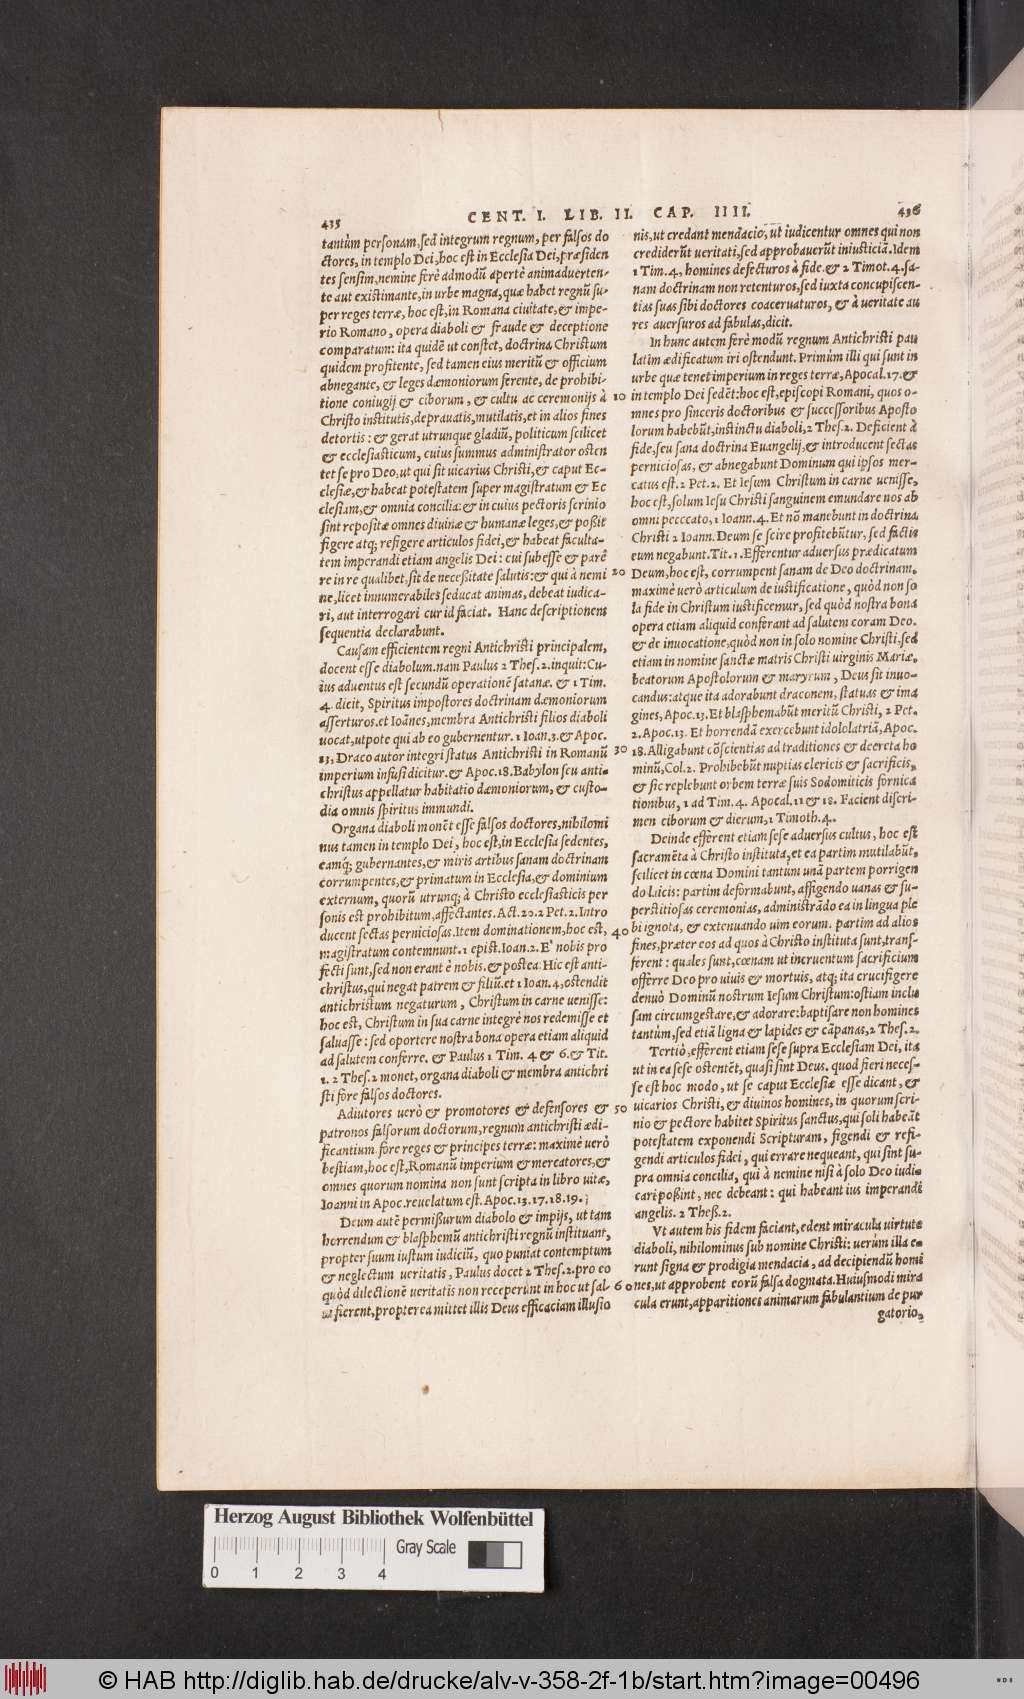 435
CENT. I. LIB. II. CAP. IIII.
436
tantùm personam, sed integrum regnum, per falsos do
ctores, in templo Dei, hoc est in Ecclesia Dei, præsiden
tes sensim, nemine ferè admodũ apertè animaduerten-
te aut existimante, in urbe magna, quæ habet regnũ su-
per reges terræ, hoc est, in Romana ciuitate, & impe-
rio Romano, opera diaboli & fraude & deceptione
comparatum: ita quidẽ ut constet, doctrina Christum
quidem profitente, sed tamen eius meritũ & officium
abnegante, & leges dæmoniorum ferente, de prohibi-
tione coniugij & ciborum, & cultu ac ceremonijs à
Christo institutis, deprauatis, mutilatis, et in alios fines
detortis: & gerat utrunque gladiũ, politicum scilicet
& ecclesiasticum, cuius summus administrator osten
tet se pro Deo, ut qui sit uicarius Christi, & caput Ec-
clesiæ, & habeat potestatem super magistratum & Ec
clesiam, & omnia concilia: & in cuius pectoris scrinio
sint repositæ omnes diuinæ & humanæ leges, & poßit
figere atq; refigere articulos fidei, & habeat faculta-
tem imperandi etiam angelis Dei: cui subesse & parẽ
re in re qualibet, sit de neceßitate salutis: & qui à nemi
ne, licet innumerabiles seducat animas, debeat iudica-
ri, aut interrogari cur id faciat. Hanc descriptionem
sequentia declarabunt.
Causam efficientem regni Antichristi principalem,
docent esse diabolum. nam Paulus 2 Thes. 2. inquit: Cu-
ius aduentus est secundũ operationẽ satanæ. & 1 Tim.
4. dicit, Spiritus impostores doctrinam dæmoniorum
asserturos. et Ioãnes, membra Antichristi filios diaboli
uocat, utpote qui ab eo gubernentur. 1 Ioan. 3. & Apoc.
13, Draco autor integri status Antichristi in Romanũ
imperium infusi dicitur. & Apoc. 18. Babylon seu anti-
christus appellatur habitatio dæmoniorum, & custo-
dia omnis spiritus immundi.
Organa diaboli monẽt esse falsos doctores, nihilomi
nus tamen in templo Dei, hoc est, in Ecclesia sedentes,
eamq́; gubernantes, & miris artibus sanam doctrinam
corrumpentes, & primatum in Ecclesia, & dominium
externum, quorũ utrunq; à Christo ecclesiasticis per
sonis est prohibitum, affectantes. Act. 20. 2 Pet. 2. Intro
ducent sectas perniciosas. Item dominationem, hoc est,
magistratum contemnunt. 1 epist. Ioan. 2. E' nobis pro
fecti sunt, sed non erant è nobis. & postea: Hic est anti-
christus, qui negat patrem & filiũ. et 1 Ioan. 4, ostendit
antichristum negaturum, Christum in carne uenisse:
hoc est, Christum in sua carne integrè nos redemisse et
saluasse: sed oportere nostra bona opera etiam aliquid
ad salutem conferre. & Paulus 1 Tim. 4 & 6. & Tit.
1. 2 Thes. 2 monet, organa diaboli & membra antichri
sti fore falsos doctores.
Adiutores uerò & promotores & defensores &
patronos falsorum doctorum, regnum antichristi ædi-
ficantium fore reges & principes terræ: maximè uerò
bestiam, hoc est, Romanũ imperium & mercatores, &
omnes quorum nomina non sunt scripta in libro uitæ,
Ioanni in Apoc. reuelatum est. Apoc. 13. 17. 18. 19.
Deum autẽ permißurum diabolo & impijs, ut tam
horrendum & blasphemũ antichristi regnũ instituant,
propter suum iustum iudiciũ, quo puniat contemptum
& neglectum ueritatis, Paulus docet 2 Thes. 2. pro eo
quòd dilectionẽ ueritatis non receperunt in hoc ut sal-
ui fierent, propterea mittet illis Deus efficaciam illusio
10
20
30
40
50
60
nis, ut credant mendacio, ut iudicentur omnes qui non
crediderũt ueritati, sed approbauerũt iniusticiã. Idem
1 Tim. 4, homines defecturos à fide. & 2 Timot. 4. sa-
nam doctrinam non retenturos, sed iuxta concupiscen-
tias suas sibi doctores coaceruaturos, & à ueritate au
res auersuros ad fabulas, dicit.
In hunc autem ferè modũ regnum Antichristi pau
latim ædificatum iri ostendunt. Primùm illi qui sunt in
urbe quæ tenet imperium in reges terræ, Apocal. 17. &
in templo Dei sedẽt: hoc est, episcopi Romani, quos o-
mnes pro sinceris doctoribus & successoribus Aposto
lorum habebũt, instinctu diaboli, 2 Thes. 2. Deficient à
fide, seu sana doctrina Euangelij, & introducent sectas
perniciosas, & abnegabunt Dominum qui ipsos mer-
catus est. 2 Pet. 2. Et Iesum Christum in carne uenisse,
hoc est, solum Iesu Christi sanguinem emundare nos ab
omni pecccato, 1 Ioann. 4. Et nõ manebunt in doctrina
Christi 2 Ioann. Deum se scire profitebũtur, sed factis
eum negabunt. Tit. 1. Efferentur aduersus prædicatum
Deum, hoc est, corrumpent sanam de Deo doctrinam,
maximè uerò articulum de iustificatione, quòd non so
la fide in Christum iustificemur, sed quòd nostra bona
opera etiam aliquid conferant ad salutem coram Deo.
& de inuocatione, quòd non in solo nomine Christi, sed
etiam in nomine sanctæ matris Christi uirginis Mariæ,
beatorum Apostolorum & maryrum, Deus sit inuo-
candus: atque ita adorabunt draconem, statuas & ima
gines, Apoc. 13. Et blasphemabũt meritũ Christi, 2 Pet.
2. Apoc. 13. Et horrendã exercebunt idololatriã, Apoc.
18. Alligabunt cõscientias ad traditiones & decreta ho
minũ, Col. 2. Prohibebũt nuptias clericis & sacrificis,
& sic replebunt orbem terræ suis Sodomiticis fornica
tionibus, 1 ad Tim. 4. Apocal. 11 & 18. Facient discri-
men ciborum & dierum, 1 Timoth. 4.
Deinde efferent etiam sese aduersus cultus, hoc est
sacramẽta à Christo instituta, et ea partim mutilabũt,
scilicet in cœna Domini tantum unã partem porrigen
do laicis: partim deformabunt, affigendo uanas & su-
perstitiosas ceremonias, administrãdo ea in lingua ple
bi ignota, & extenuando uim eorum. partim ad alios
fines, præter eos ad quos à Christo instituta sunt, trans-
ferent: quales sunt, cœnam ut incruentum sacrificium
offerre Deo pro uiuis & mortuis, atq; ita crucifigere
denuò Dominũ nostrum Iesum Christum: ostiam inclu
sam circumgestare, & adorare: baptisare non homines
tantùm, sed etiã ligna & lapides & cãpanas, 2 Thes. 2.
Tertiò, efferent etiam sese supra Ecclesiam Dei, ita
ut in ea sese ostentẽt, quasi sint Deus. quod fieri neces-
se est hoc modo, ut se caput Ecclesiæ esse dicant, &
uicarios Christi, & diuinos homines, in quorum scri-
nio & pectore habitet Spiritus sanctus, qui soli habeãt
potestatem exponendi Scripturam, figendi & refi-
gendi articulos fidei, qui errare nequeant, qui sint su-
pra omnia concilia, qui à nemine nisi à solo Deo iudi-
cari poßint, nec debeant: qui habeant ius imperandi
angelis. 2 Theß. 2.
Vt autem his fidem faciant, edent miracula uirtute
diaboli, nihilominus sub nomine Christi: uerùm illa e-
runt signa & prodigia mendacia, ad decipiendũ homi
nes, ut approbent eorũ falsa dogmata. Huiusmodi mira
cula erunt, apparitiones animarum fabulantium de pur
gatorio,
Herzog August Bibliothek Wolfenbüttel
Gray Scale
0 1 2 3 4
© HAB http://diglib.hab.de/drucke/alv-v-358-2f-1b/start.htm?image=00496